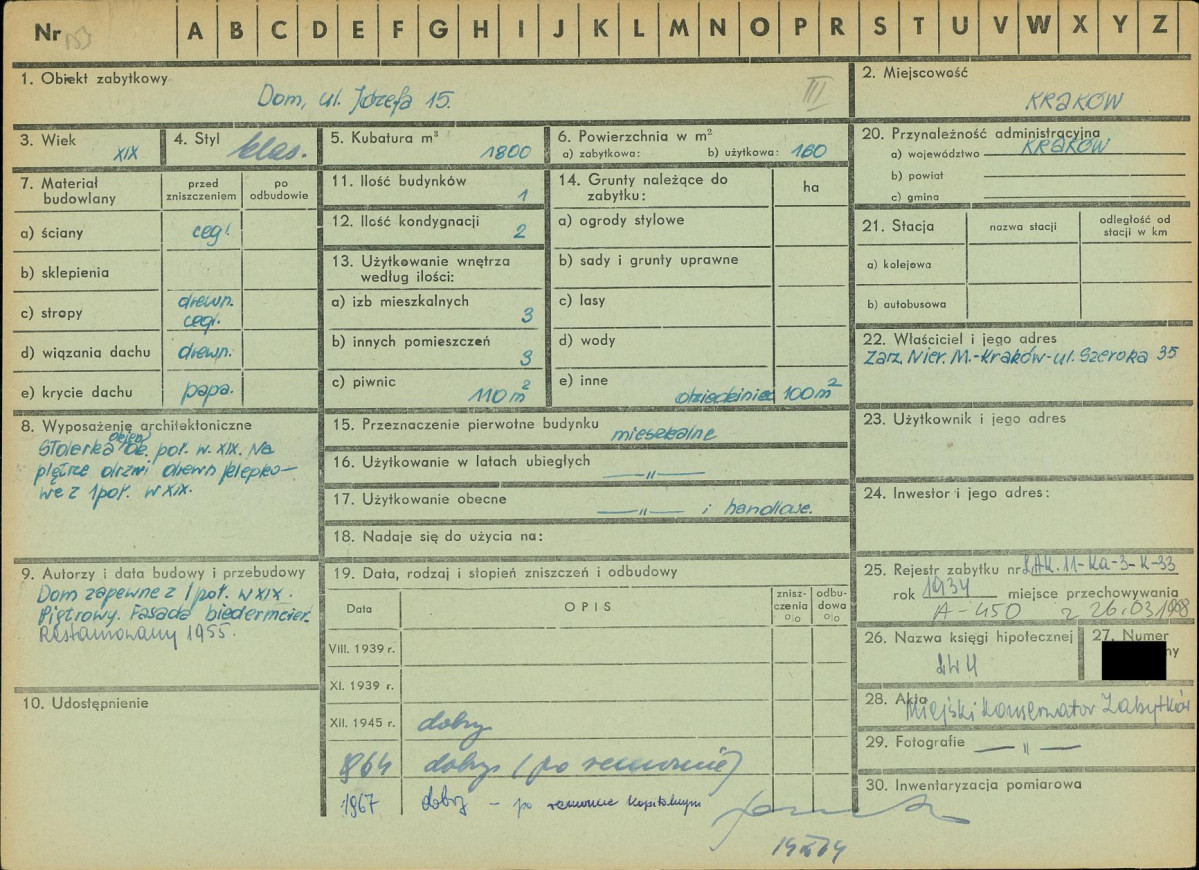 Nr 153 A B C D E F G H I J K L M N O P R S T U V W X Y Z
1. Obiekt zabytkowy
Dom, ul. Józefa 15.
III
2. Miejscowość
KRAKÓW
3. Wiek
XIX
4. Styl
klas.
5. Kubatura m³
1800
6. Powierzchnia w m²
a) zabytkowa: b) użytkowa: 160
20. Przynależność administracyjna
a) województwo KRAKÓW
b) powiat
c) gmina
7. Materiał budowlany
przed zniszczeniem
po odbudowie
a) ściany cegł.
b) sklepienia
c) stropy drewn. cegł.
d) wiązania dachu drewn.
e) krycie dachu papa.
11. Ilość budynków 1
12. Ilość kondygnacji 2
13. Użytkowanie wnętrza według ilości:
a) izb mieszkalnych 3
b) innych pomieszczeń 3
c) piwnic 110 m²
14. Grunty należące do zabytku:
ha
a) ogrody stylowe
b) sady i grunty uprawne
c) lasy
d) wody
e) inne dziedziniec 100 m²
21. Stacja
nazwa stacji
odległość od stacji w km
a) kolejowa
b) autobusowa
22. Właściciel i jego adres
Zarz. Nier. M.-Kraków-ul. Szeroka 35
8. Wyposażenie architektoniczne
Stolarka okien
poł. w. XIX. Na
piętrze drzwi drewn klepko-
we z 1 poł. w XIX.
15. Przeznaczenie pierwotne budynku mieszkalne
16. Użytkowanie w latach ubiegłych —"—
17. Użytkowanie obecne —"— i handlowe.
18. Nadaje się do użycia na:
23. Użytkownik i jego adres
24. Inwestor i jego adres:
9. Autorzy i data budowy i przebudowy
Dom zapewne z 1 poł. w XIX.
Piętrowy. Fasada biedermeier.
Restaurowany 1955.
19. Data, rodzaj i stopień zniszczeń i odbudowy
Data
OPIS
znisz-czenia o|o
odbu-dowa o|o
VIII. 1939 r.
XI. 1939 r.
XII. 1945 r. dobry
1964 dobry (po remoncie)
1967 dobry – po remoncie kapitalnym
25. Rejestr zabytku nr L.AK. 11-Ka-3-K-33
rok 1934 miejsce przechowywania
A-450 z 26.03.1968
26. Nazwa księgi hipotecznej
LWH
27. Numer
ny
28. Akta Miejski Konserwator Zabytków
29. Fotografie —"—
30. Inwentaryzacja pomiarowa
10. Udostępnienie